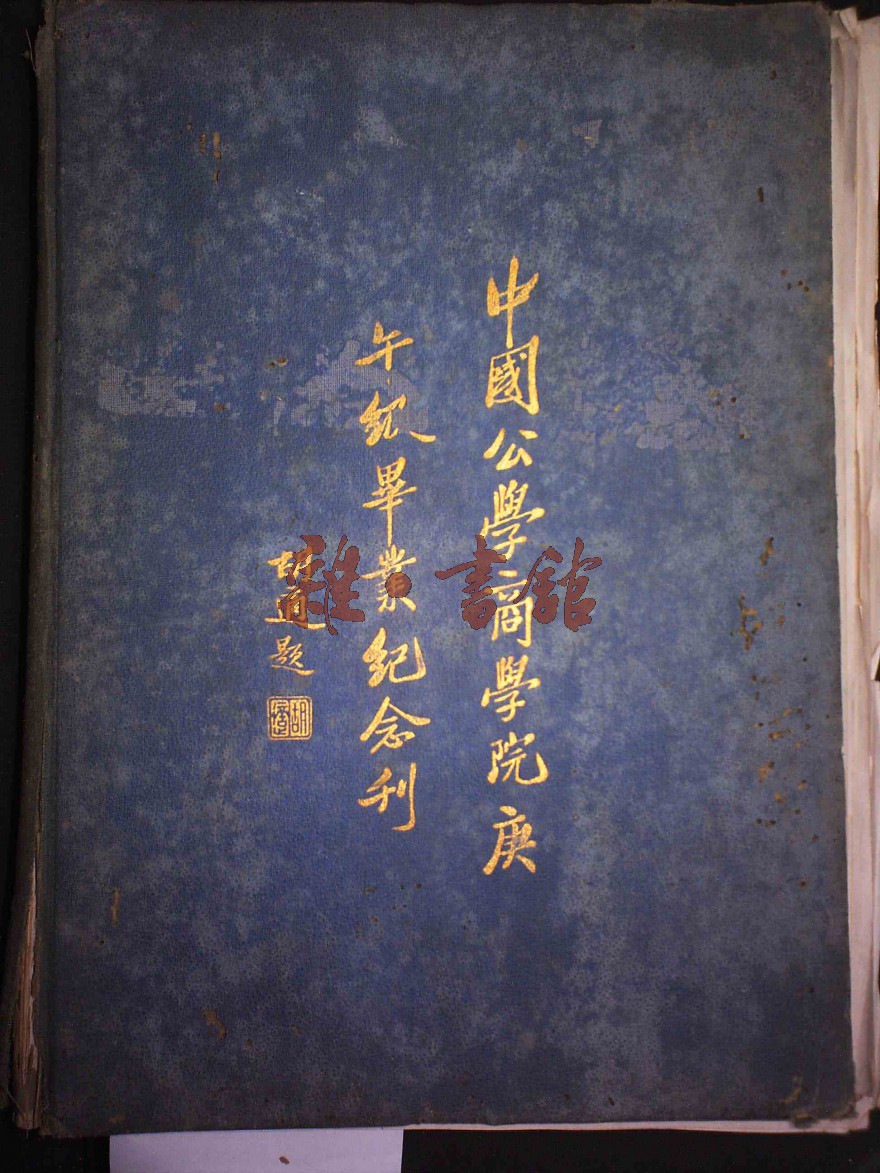 中國公學商學院庚
午級畢業紀念刊
胡適題
胡適
雜·書館